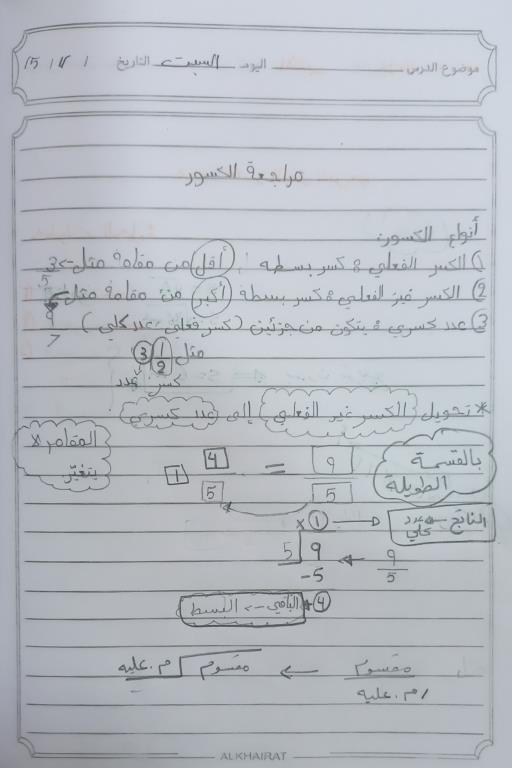 موضوع الدرس اليوم السبت التاريخ / ١٢ / ١٥
مراجعة الكسور
أنواع الكسور:
① الكسر الفعلي: كسر بسطه أقل من مقامه مثل -> 3/5
② الكسر غير الفعلي: كسر بسطه أكبر من مقامه مثل <- 8/7
③ عدد كسري: يتكون من جزئين (كسر فعلي، عدد كلي)
مثل 3 1/2
كسر عدد
* تحويل الكسر غير الفعلي إلى عدد كسري
بالقسمة الطويلة
9/5 = 1 4/5
المقام لا يتغير
الناتج <- عدد كلي
× ①
5 9 <- 9/5
-5
④ الباقي -> البسط
مقسوم / م. عليه <- مقسوم م. عليه
ALKHAIRAT